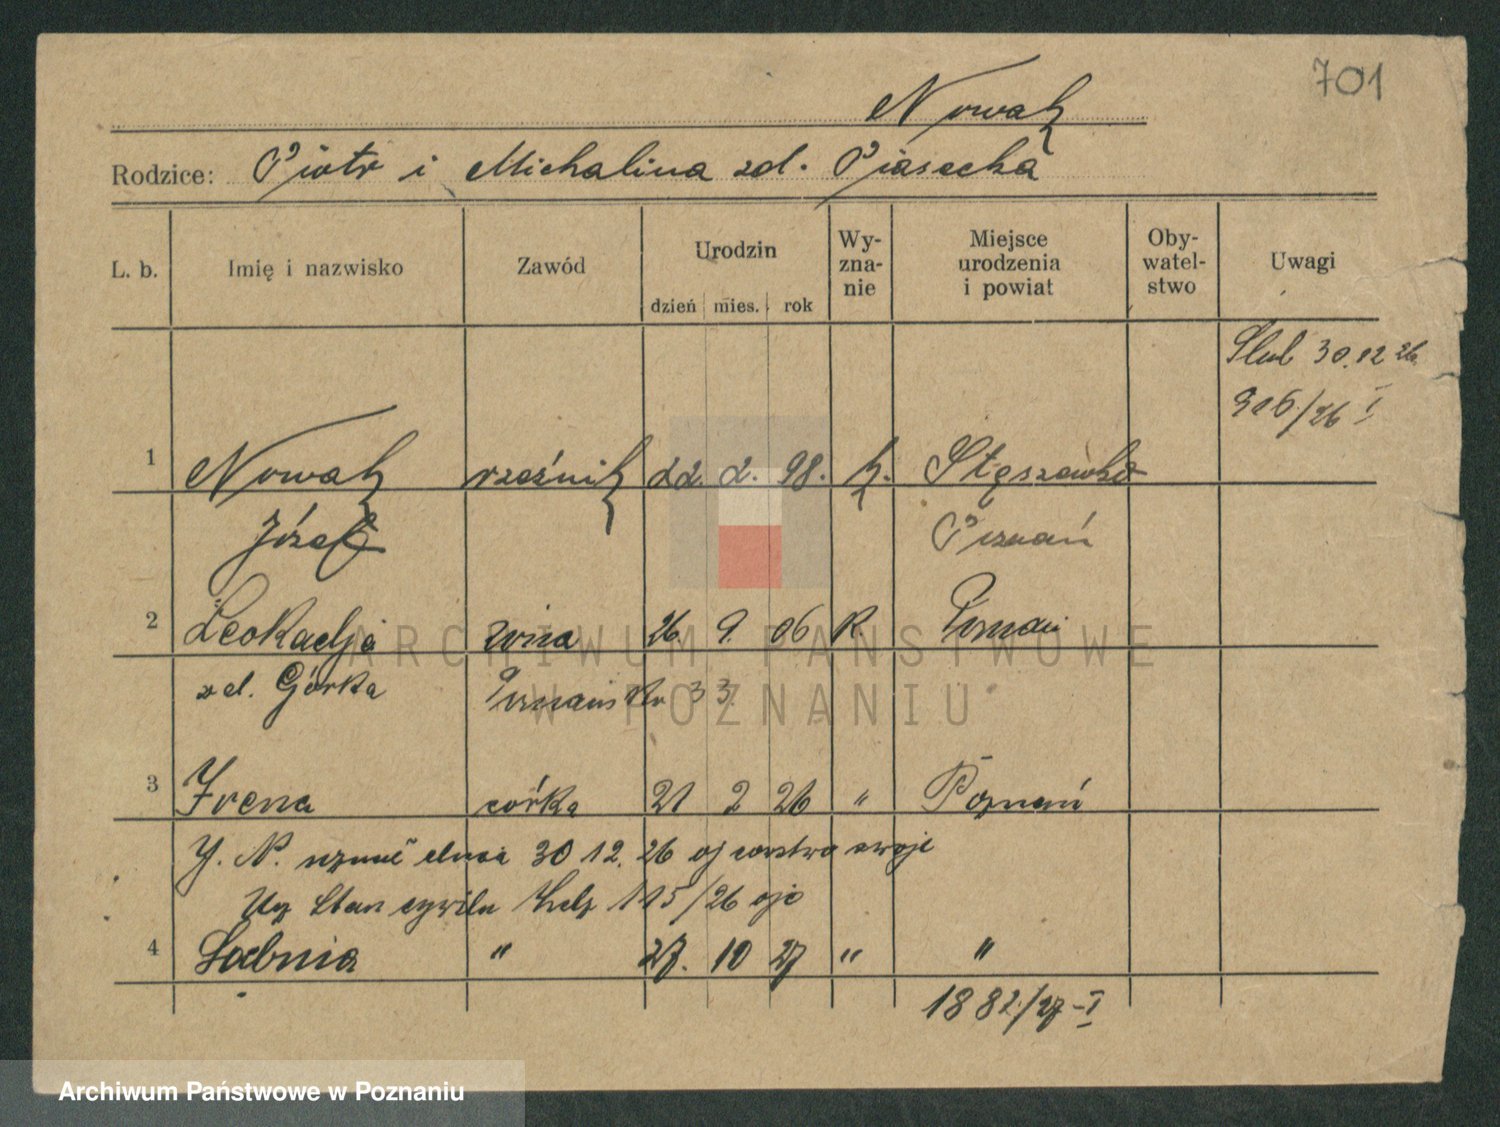 701
Nowak
Rodzice: Piotr i Michalina zd. Piasecka
L. b. Imię i nazwisko Zawód Urodzin dzień mies. rok Wy-zna-nie Miejsce urodzenia i powiat Oby-watel-stwo Uwagi
Ślub 30.12 26.
316/26 I
1 Nowak rzeźnik 22. 2. 98. k. Stęszewko
Józef Poznań
2 Leokadja żona 26. 9. 06 k. Poznań
zd. Górka 33.
3 Irena córka 21 2 26 " Poznań
J. N. uznał dnia 30 12. 26 ojcostwo swoje
Urz Stan cywiln 115/26
4 Sabina " 27. 10 27 " "
1882/27-I
ARCHIWUM PAŃSTWOWE
W POZNANIU
Archiwum Państwowe w Poznaniu